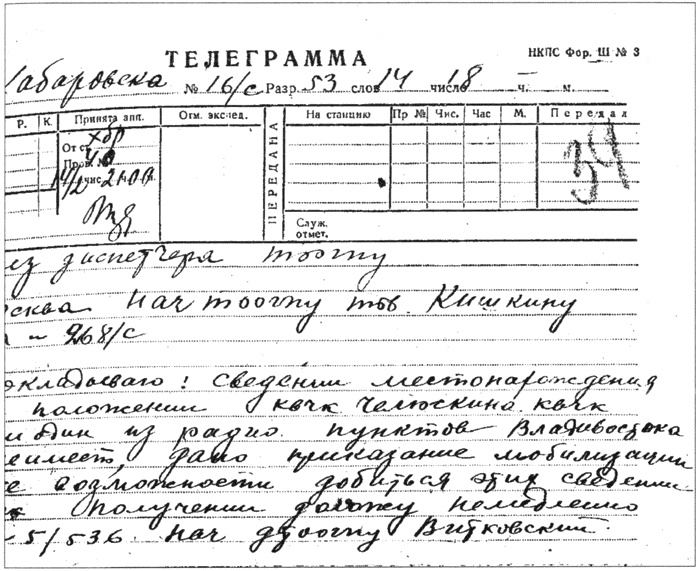 ТЕЛЕГРАММА
НКПС Фор. Ш № 3
Хабаровска № 16/с Разр. 53 слов 14 число 18 ч. м.
Р. К. Принята апп. Отм. экспед. ПЕРЕДАНА На станцию Пр № Чис. Час М. Передал
От ст. Хбр
Пров. №
14/2 чис. 21 00
39
Служ. отмет.
ез диспетчера тоогпу
сква нач тоогпу тов. Кишкину
268/с
окладываю: сведении местонарождения
положении квчк Челюскина квчк
и один из радио. пунктов Владивостока
еимеет, дано приказание мобилизации
е возможности добиться этих сведении
получении доложу немедленно
5/536 нач дтоогпу Витковский.